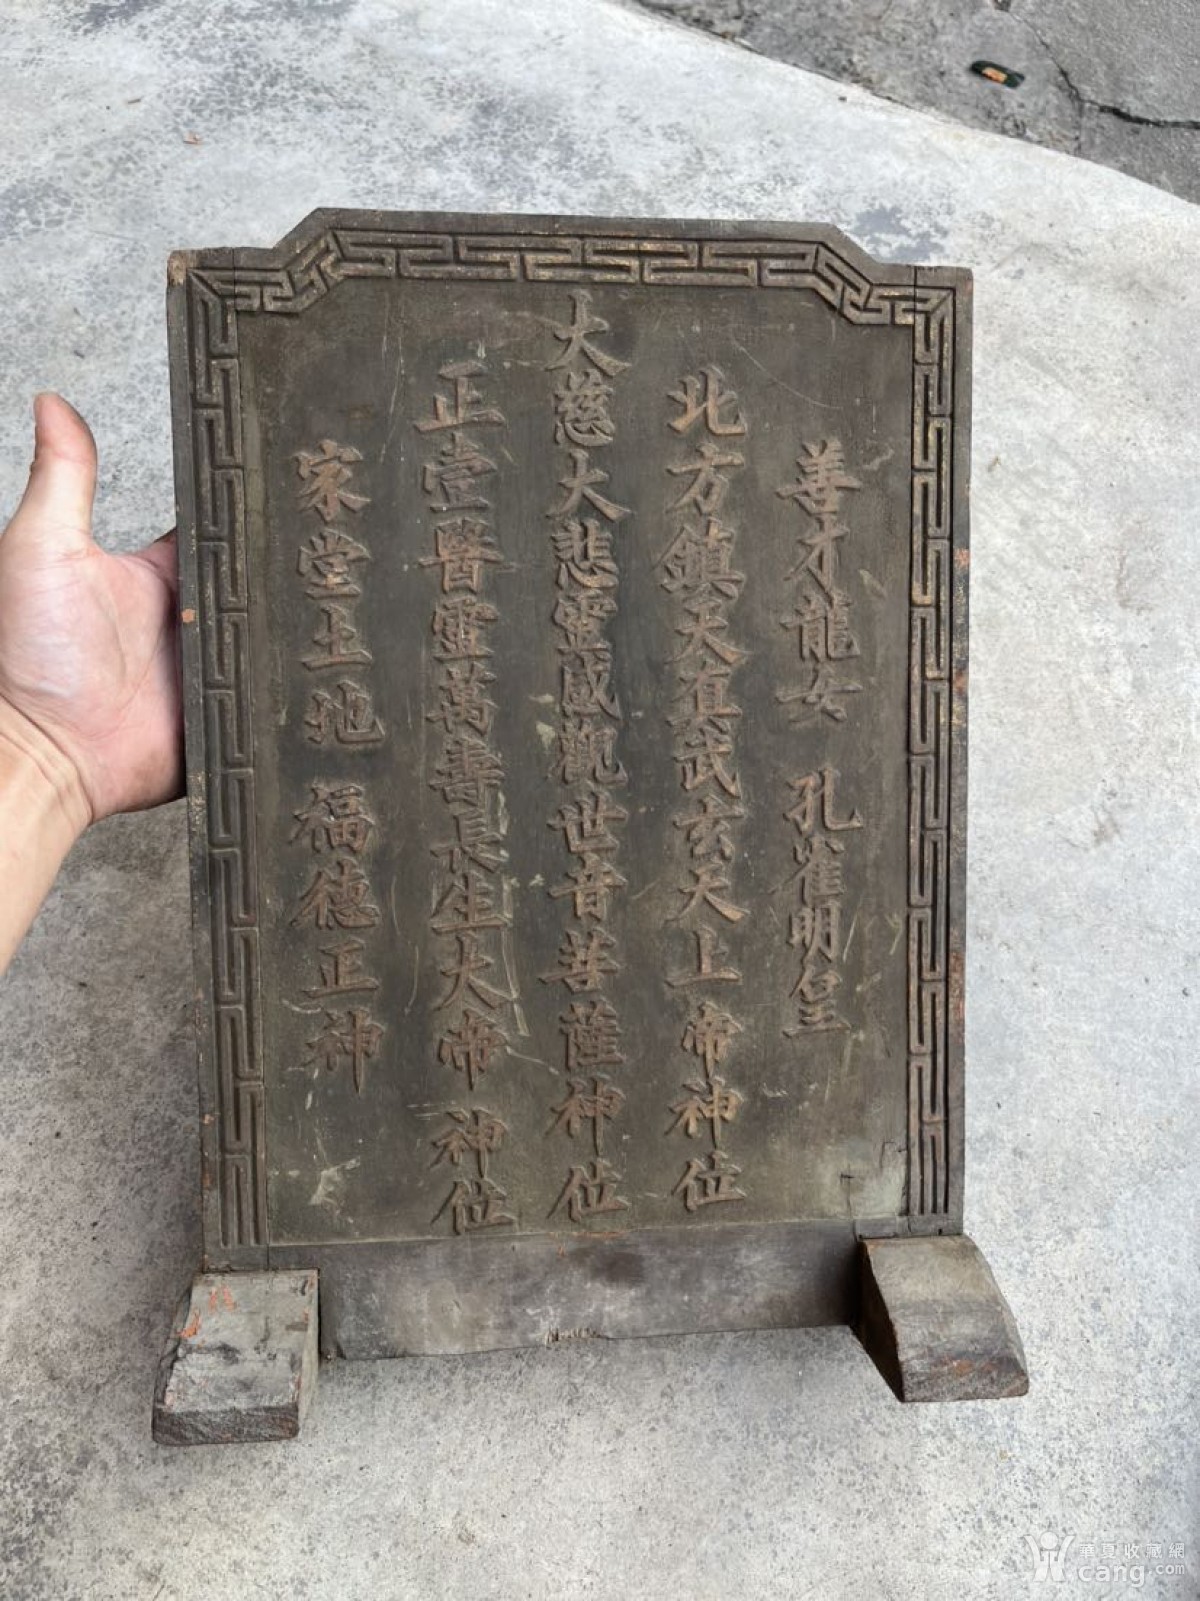 善才龍女 孔雀明皇
北方鎮天真武玄天上帝神位
大慈大悲靈感觀世音菩薩神位
正壹醫靈萬壽長生大帝 神位
家堂土地 福德正神
華夏收藏網
cang.com